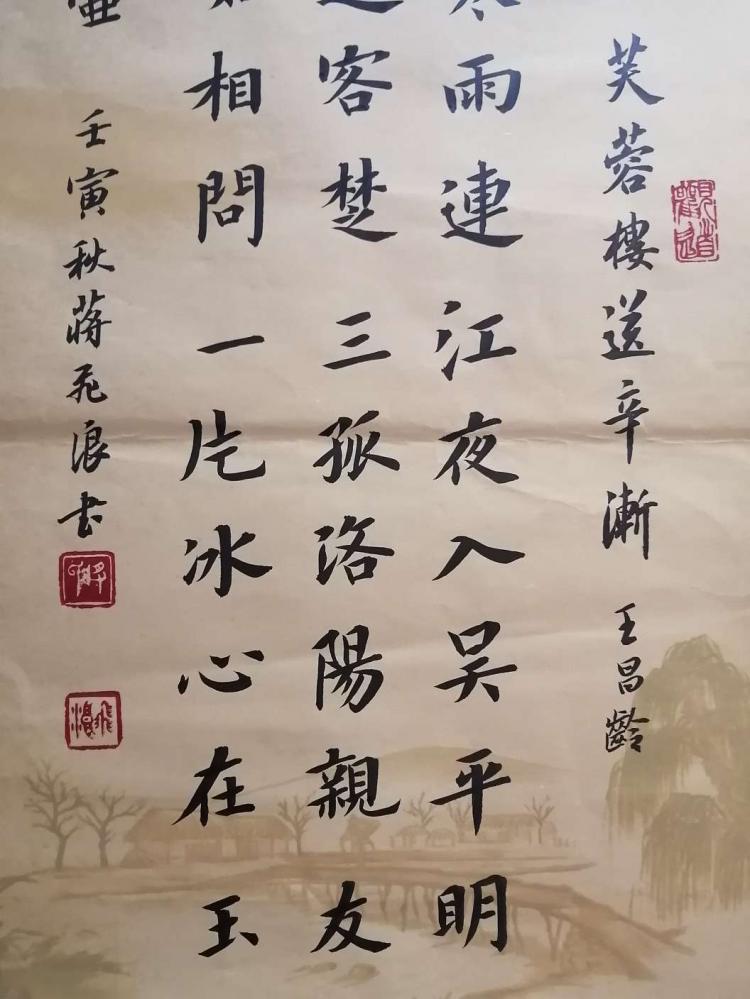 芙蓉樓送辛漸 王昌齡
寒雨連江夜入吴平明
送客楚三孤洛陽親友
如相問一片冰心在玉
壺 壬寅秋蔣飛浪书
飛浪